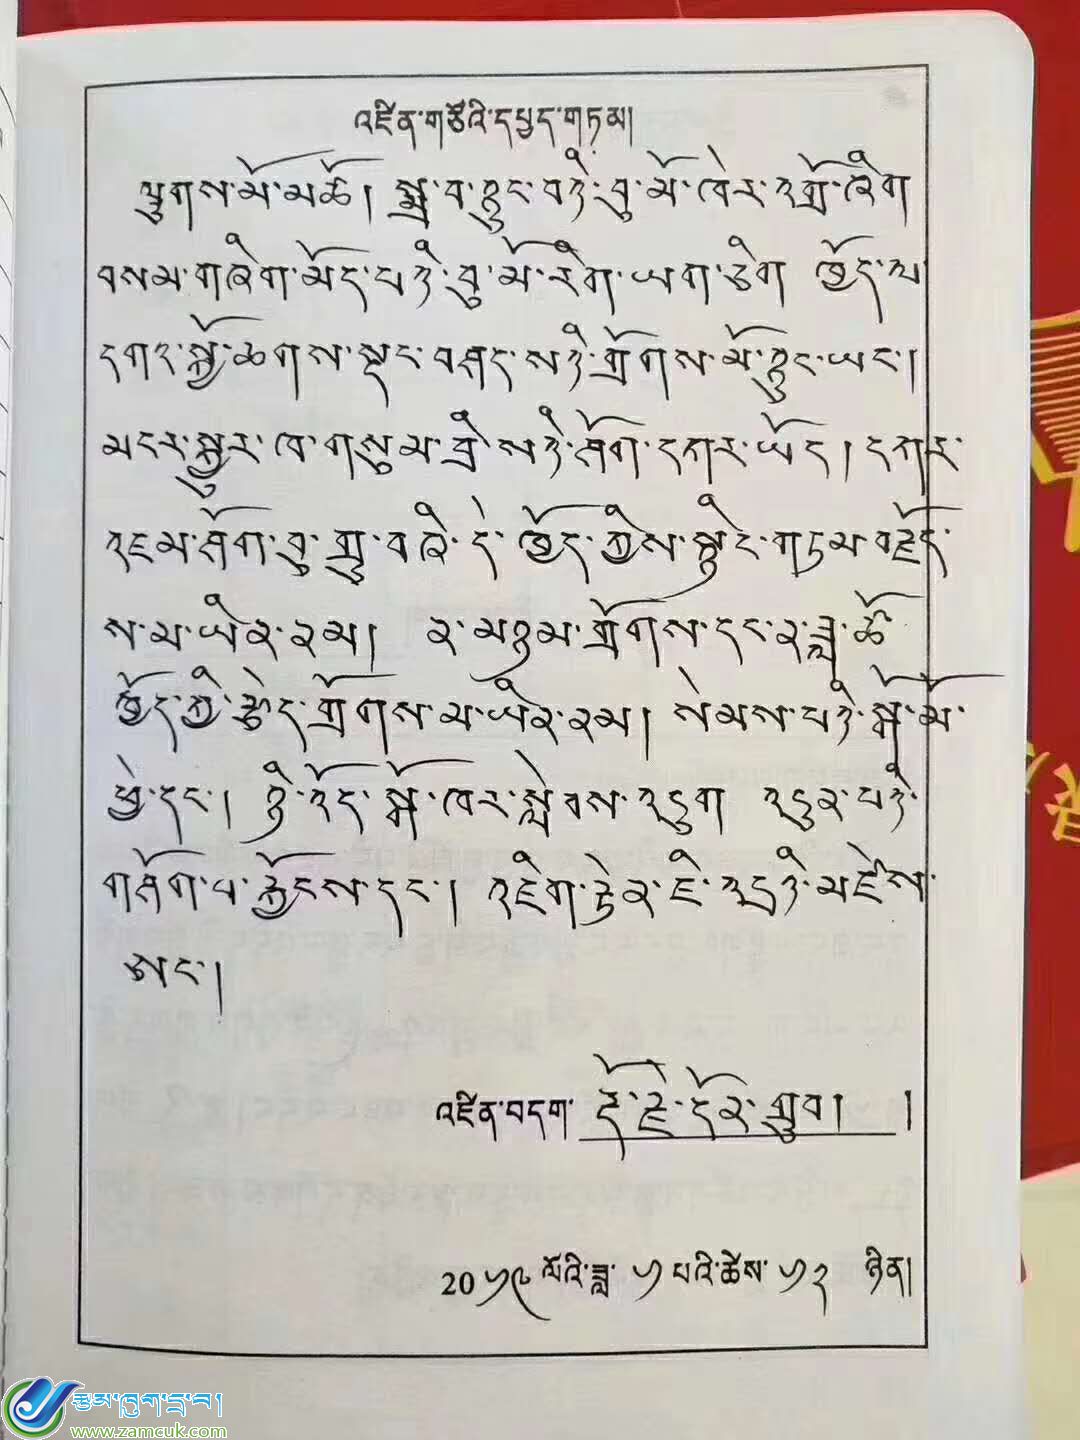 འཛིན་གཙོའི་དཔྱད་གཏམ།
ལྷུགས་མོ་མཚོ། སྨྲ་བ་ཉུང་བའི་བུ་མོ་ཁེར་འགྲོ་ཞིག
བསམ་གཞིག་མོད་པའི་བུ་མོ་རིག་ཡག་ཅིག ཁྱོད་ལ
དགའ་སྐྱོ་ཆགས་སྡང་བཤད་སའི་གྲོགས་མོ་ཉུང་ཡང་།
མངར་སྐྱུར་ཁ་གསུམ་བྲི་སའི་ཤོག་དཀར་ཡོད། དཀར
འཇམ་ཤོག་བུ་གྲུ་བཞི་དེ་ཁྱོད་ཀྱིས་སྙིང་གཏམ་བརྗོད
ས་མ་ཡིན་ནམ། ང་མཉམ་གྲོགས་དང་ན་ཟླ་ཚོ
ཁྱོད་ཀྱི་རྩེད་གྲོགས་མ་ཡིན་ནམ། སེམས་པའི་སྒོ་མོ་
ཕྱེ་དང་། ཉི་འོད་སྒོ་ཁར་སླེབས་འདུག འདུན་པའི་
གཤོག་པ་རྐྱོངས་དང་། འཇིག་རྟེན་ཇི་འདྲའི་མཛེས་
ཨང་།
འཛིན་བདག་ རྡོ་རྗེ་དོན་གྲུབ། །
20༡༩ ལོའི་ཟླ་ ༡ པའི་ཚེས་ ༡༢ ཉིན།
རྩམ་ཁུག་དྲ་བ།
www.zamcuk.com